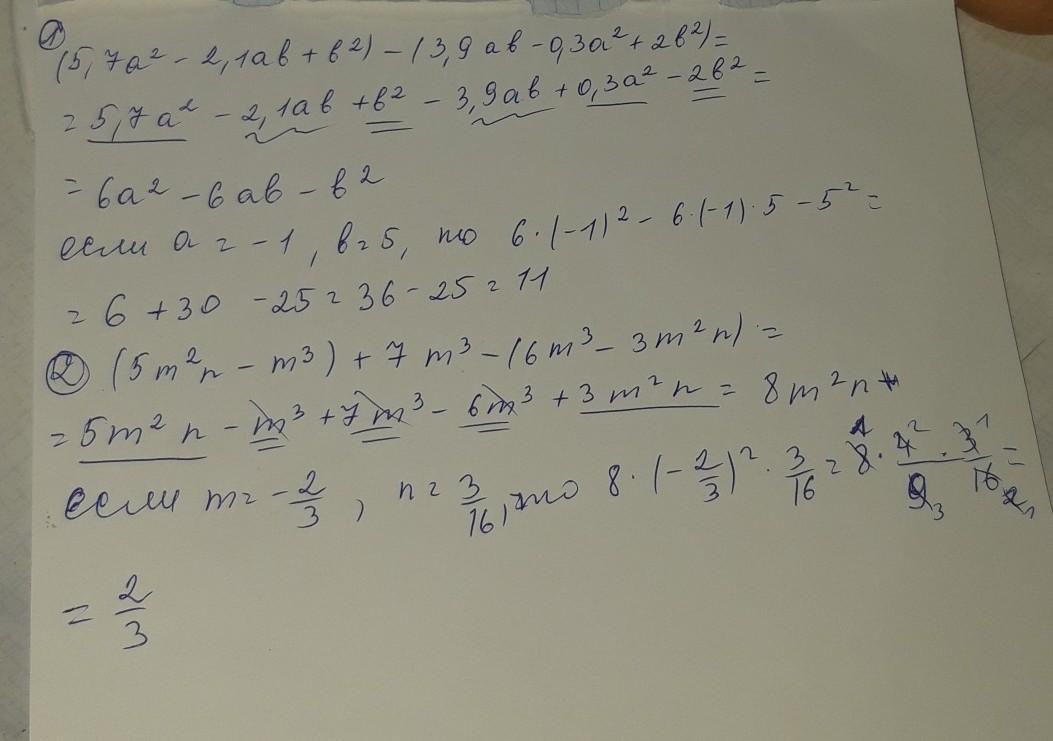 ①
(5,7a² - 2,1ab + b²) - (3,9ab - 0,3a² + 2b²) =
= 5,7a² - 2,1ab + b² - 3,9ab + 0,3a² - 2b² =
= 6a² - 6ab - b²
если a = -1, b = 5, то 6·(-1)² - 6·(-1)·5 - 5² =
= 6 + 30 - 25 = 36 - 25 = 11
② (5m²n - m³) + 7m³ - (6m³ - 3m²n) =
= 5m²n - m³ + 7m³ - 6m³ + 3m²n = 8m²n
если m = -2/3, n = 3/16, то 8·(-2/3)²·3/16 = 8·4·3/(9·16) =
= 2/3